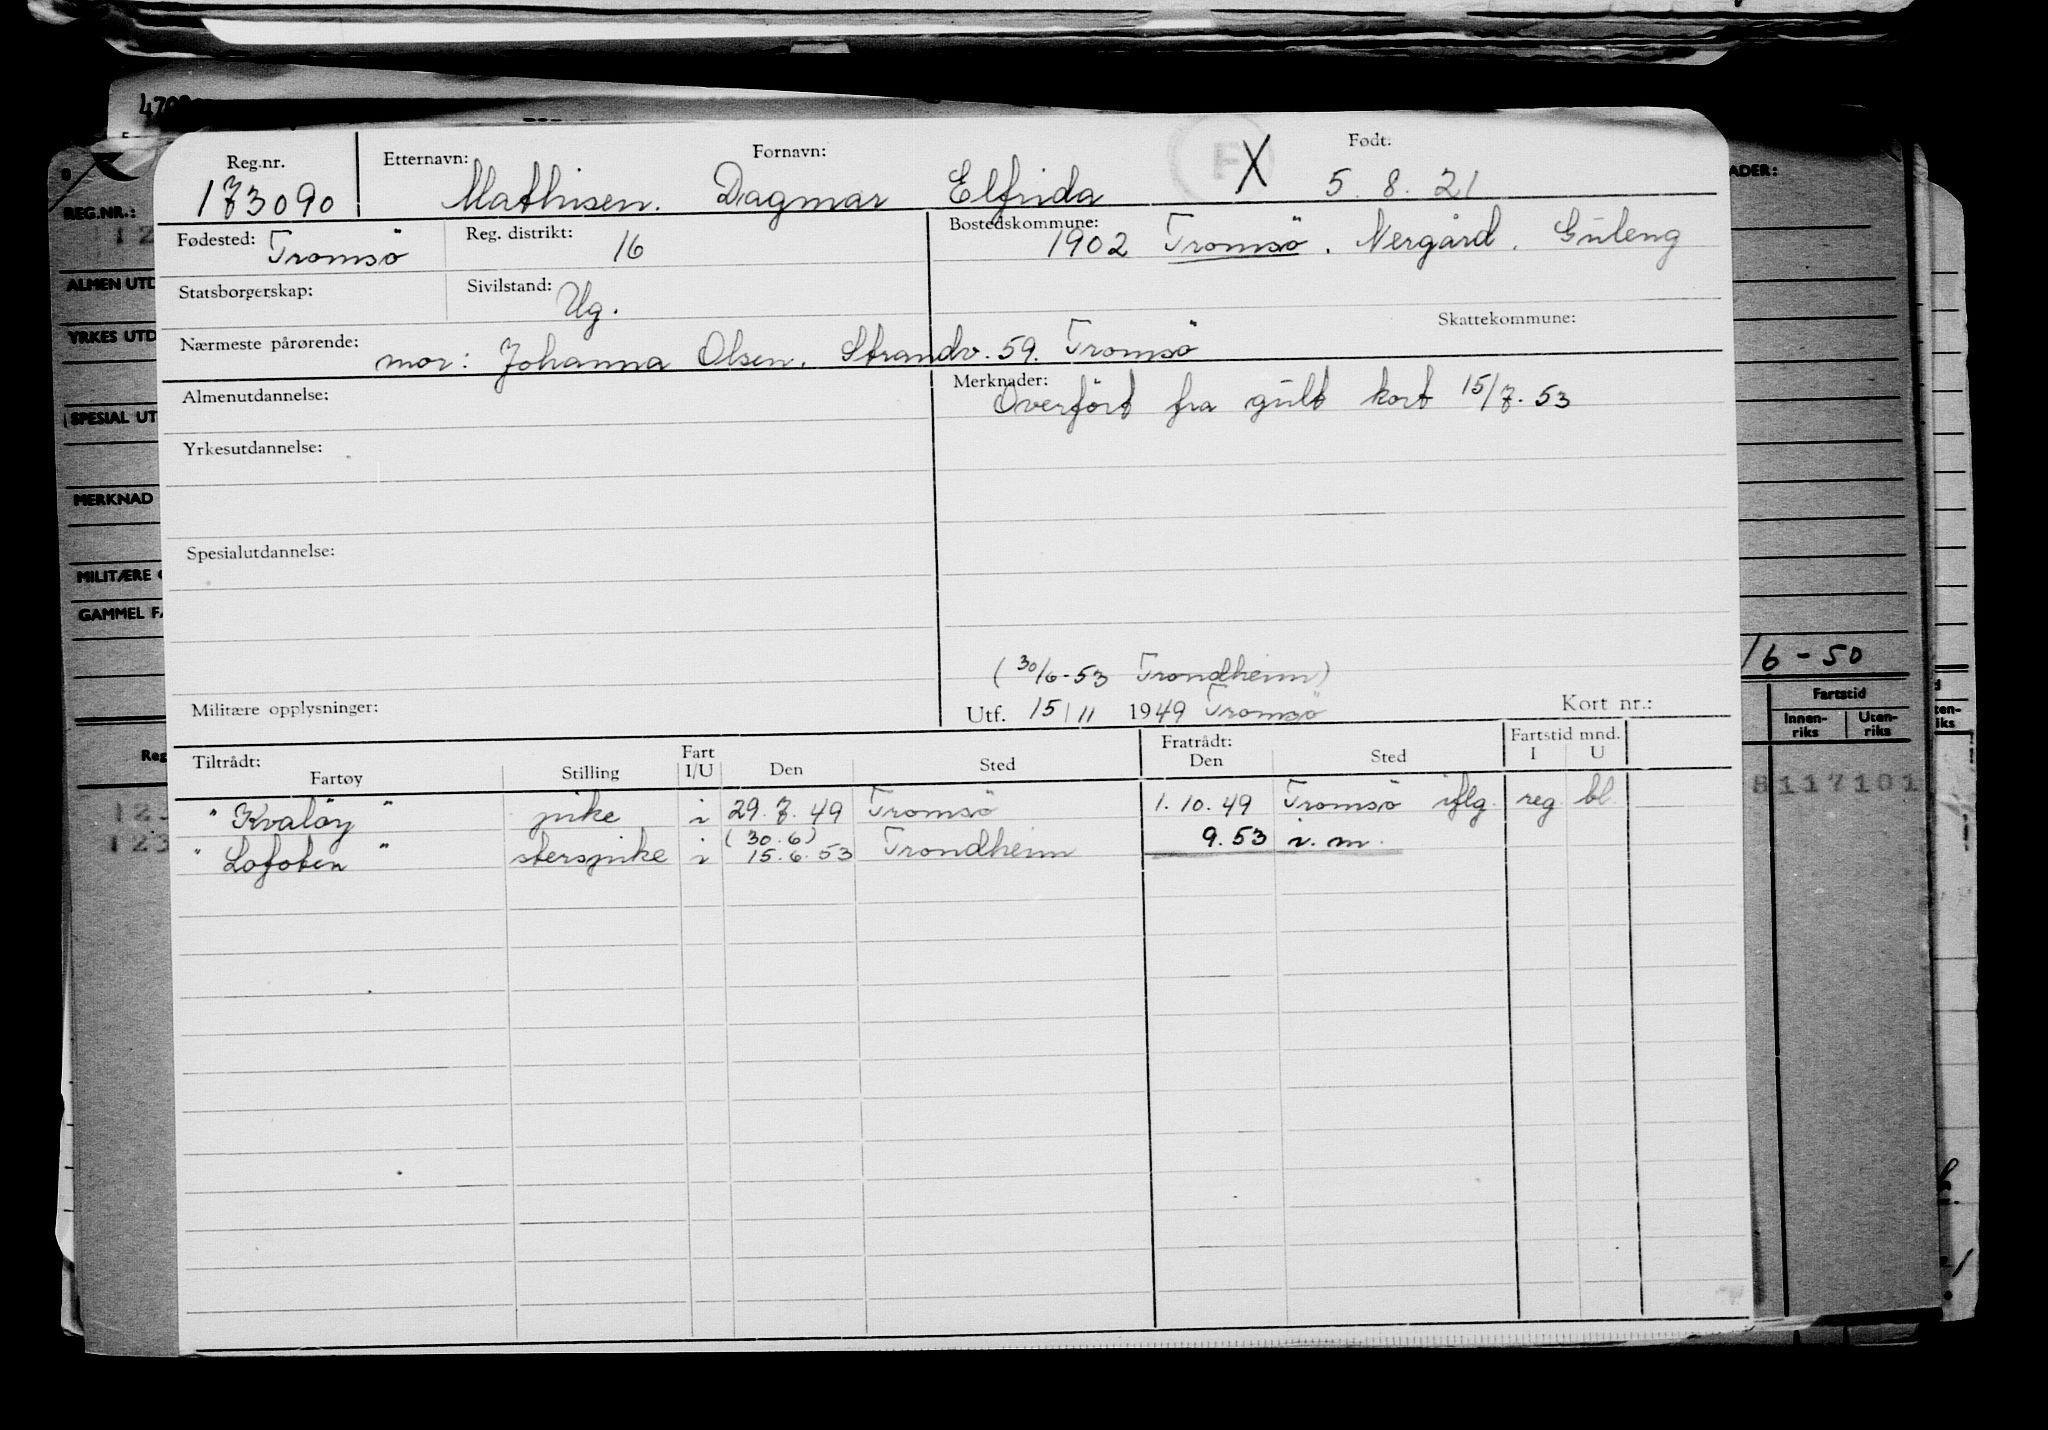 4702
Reg.nr. Etternavn: Fornavn: F X Født:
173090 Mathisen. Dagmar Elfrida 5. 8. 21
Fødested: Tromsö Reg. distrikt: 16 Bostedskommune: 1902 Tromsö. Nergård. Guleng
Statsborgerskap: Sivilstand: Ug.
Skattekommune:
Nærmeste pårørende: mor: Johanna Olsen. Strandv. 59. Tromsö
Almenutdannelse: Merknader: Overfört fra gult kort 15/7. 53
Yrkesutdannelse:
Spesialutdannelse:
(30/6-53 Trondheim)
Militære opplysninger: Utf. 15/11 1949 Tromsö Kort nr.:
Tiltrådt: Fartøy Stilling Fart I/U Den Sted Fratrådt: Den Sted Fartstid mnd. I U
"Kvalöy" pike i 29. 7. 49 Tromsö 1. 10. 49 Tromsö iflg. reg. bl.
"Lofoten" sterspike i (30. 6) 15. 6. 53 Trondheim 9. 53 i. m.
REG.NR.:
12
ALMEN UTD
YRKES UTD
SPESIAL UT
MERKNAD
MILITÆRE
GAMMEL FA
Reg
123
123
ADER:
/6 - 50
Fartstid
Innen-riks Uten-riks
8117101